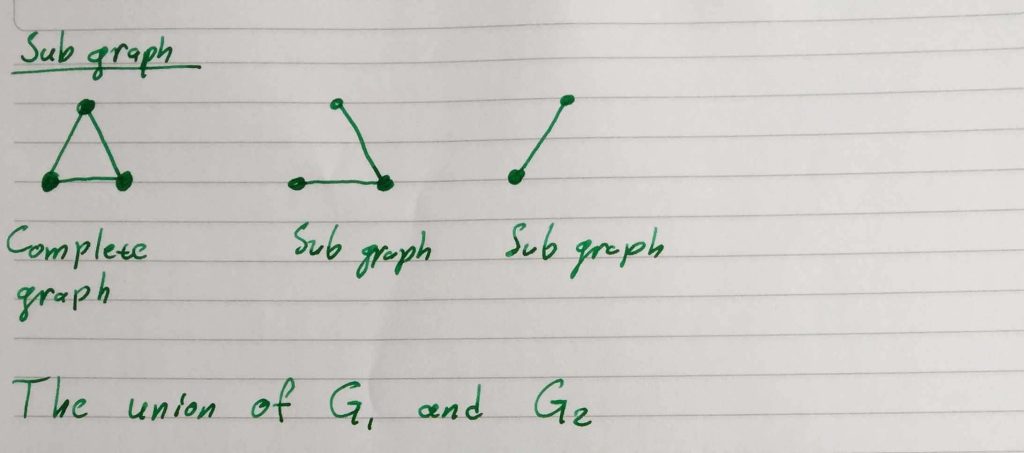 Sub graph
Complete Sub graph Sub graph
graph
The union of G₁ and G₂